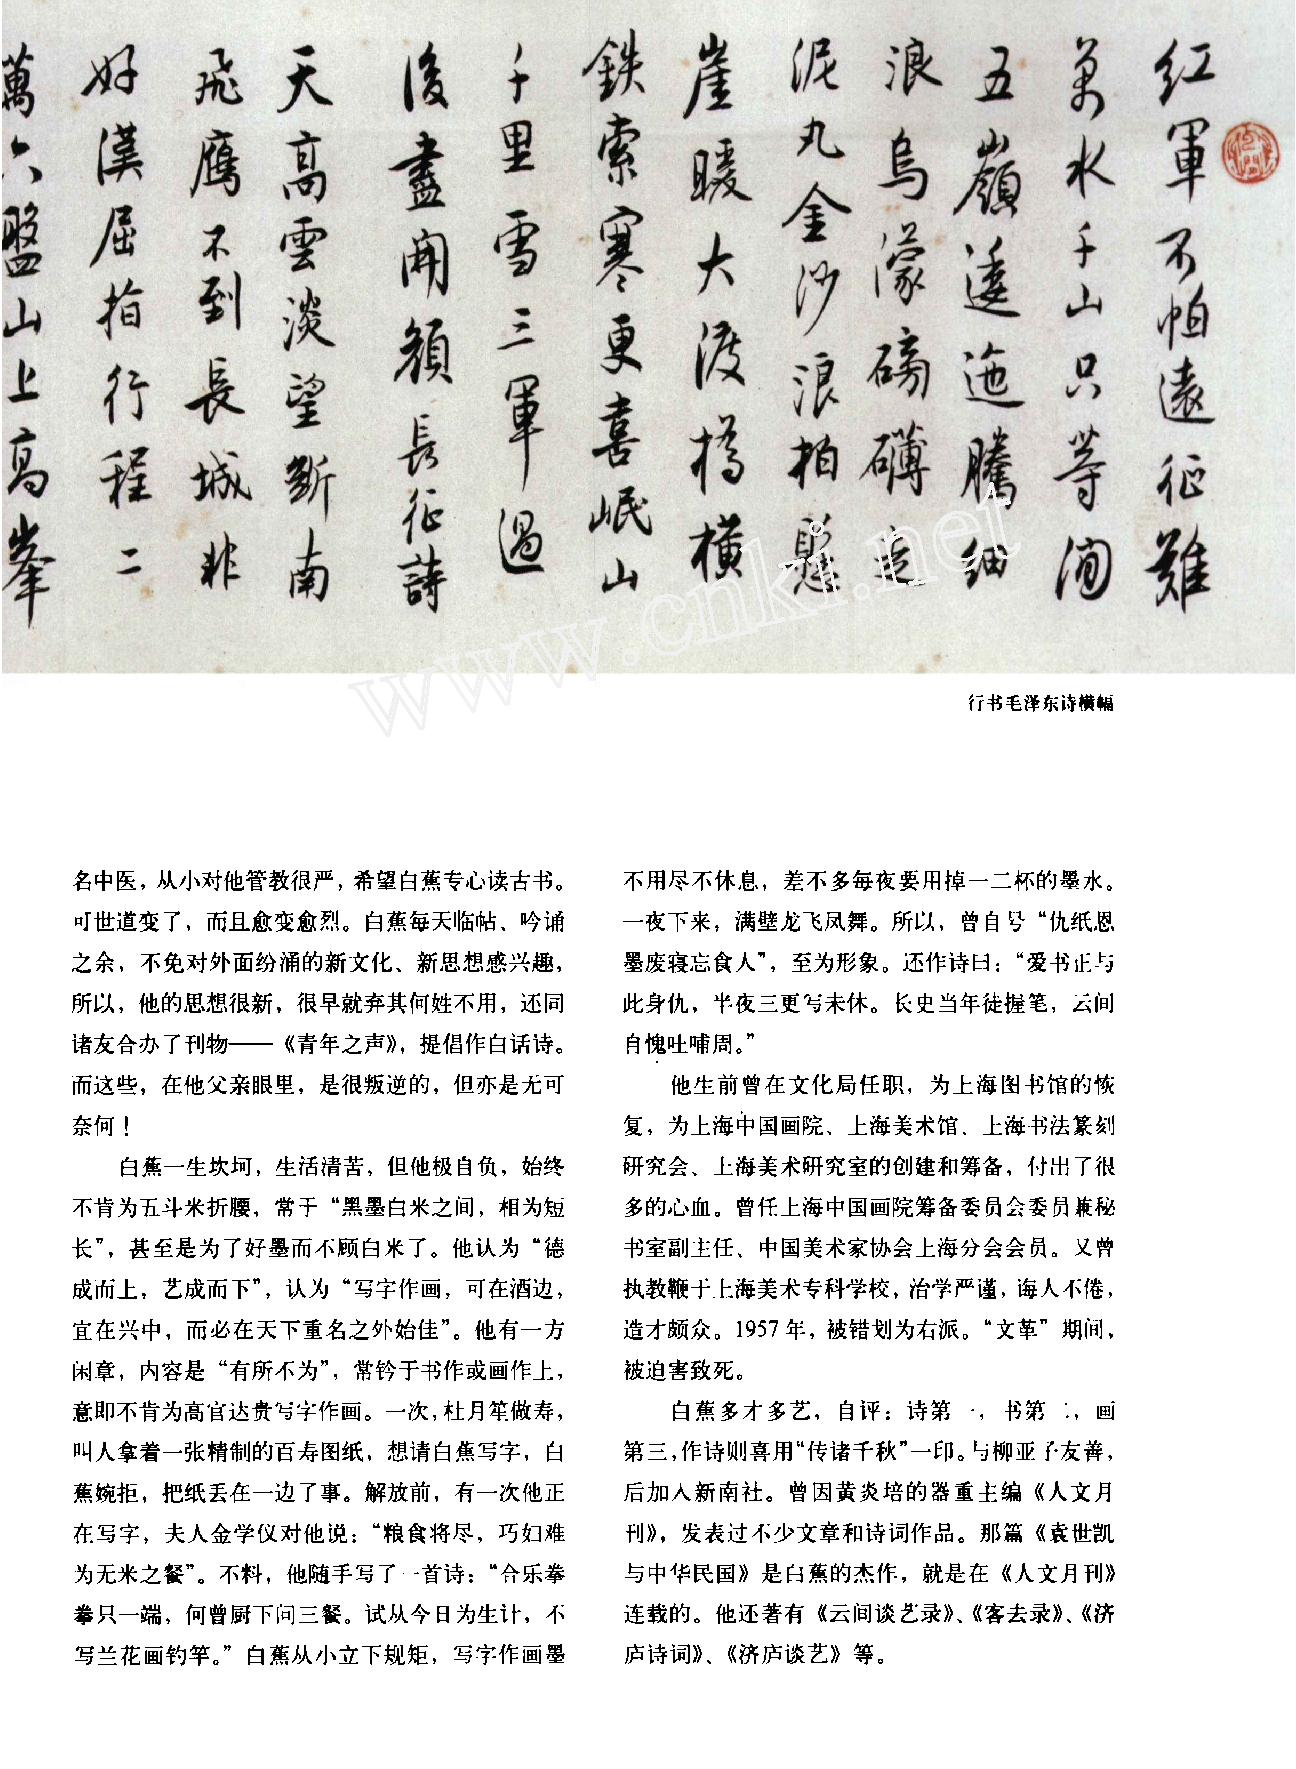 红軍不怕遠征難
萬水千山只等闲
五嶺逶迤騰細
浪烏濛磅礴走
泥丸金沙浪拍懸
崖暖大渡橋橫
鉄索寒更喜岷山
千里雪三軍過
後盡開顏長征詩
天高雲淡望斷南
飛鷹不到長城非
好漢屈指行程二
萬六盤山上高峯
www.cnki.net
行书毛泽东诗横幅
名中医，从小对他管教很严，希望白蕉专心读古书。
可世道变了，而且愈变愈烈。白蕉每天临帖、吟诵
之余，不免对外面纷涌的新文化、新思想感兴趣，
所以，他的思想很新，很早就弃其何姓不用，还同
诸友合办了刊物——《青年之声》，提倡作白话诗。
而这些，在他父亲眼里，是很叛逆的，但亦是无可
奈何！
白蕉一生坎坷，生活清苦，但他极自负，始终
不肯为五斗米折腰，常于“黑墨白米之间，相为短
长”，甚至是为了好墨而不顾白米了。他认为“德
成而上，艺成而下”，认为“写字作画，可在酒边，
宜在兴中，而必在天下重名之外始佳”。他有一方
闲章，内容是“有所不为”，常钤于书作或画作上，
意即不肯为高官达贵写字作画。一次，杜月笙做寿，
叫人拿着一张精制的百寿图纸，想请白蕉写字，白
蕉婉拒，把纸丢在一边了事。解放前，有一次他正
在写字，夫人金学仪对他说：“粮食将尽，巧妇难
为无米之餐”。不料，他随手写了一首诗：“合乐拳
拳只一端，何曾厨下问三餐。试从今日为生计，不
写兰花画钓竿。”白蕉从小立下规矩，写字作画墨
不用尽不休息，差不多每夜要用掉一二杯的墨水。
一夜下来，满壁龙飞凤舞。所以，曾自号“仇纸恩
墨废寝忘食人”，至为形象。还作诗曰：“爱书正与
此身仇，半夜三更写未休。长史当年徒握笔，云间
自愧吐哺周。”
他生前曾在文化局任职，为上海图书馆的恢
复，为上海中国画院、上海美术馆、上海书法篆刻
研究会、上海美术研究室的创建和筹备，付出了很
多的心血。曾任上海中国画院筹备委员会委员兼秘
书室副主任、中国美术家协会上海分会会员。又曾
执教鞭于上海美术专科学校，治学严谨，诲人不倦，
造才颇众。1957 年，被错划为右派。“文革”期间，
被迫害致死。
白蕉多才多艺，自评：诗第一，书第二，画
第三，作诗则喜用“传诸千秋”一印。与柳亚子友善，
后加入新南社。曾因黄炎培的器重主编《人文月
刊》，发表过不少文章和诗词作品。那篇《袁世凯
与中华民国》是白蕉的杰作，就是在《人文月刊》
连载的。他还著有《云间谈艺录》、《客去录》、《济
庐诗词》、《济庐谈艺》等。